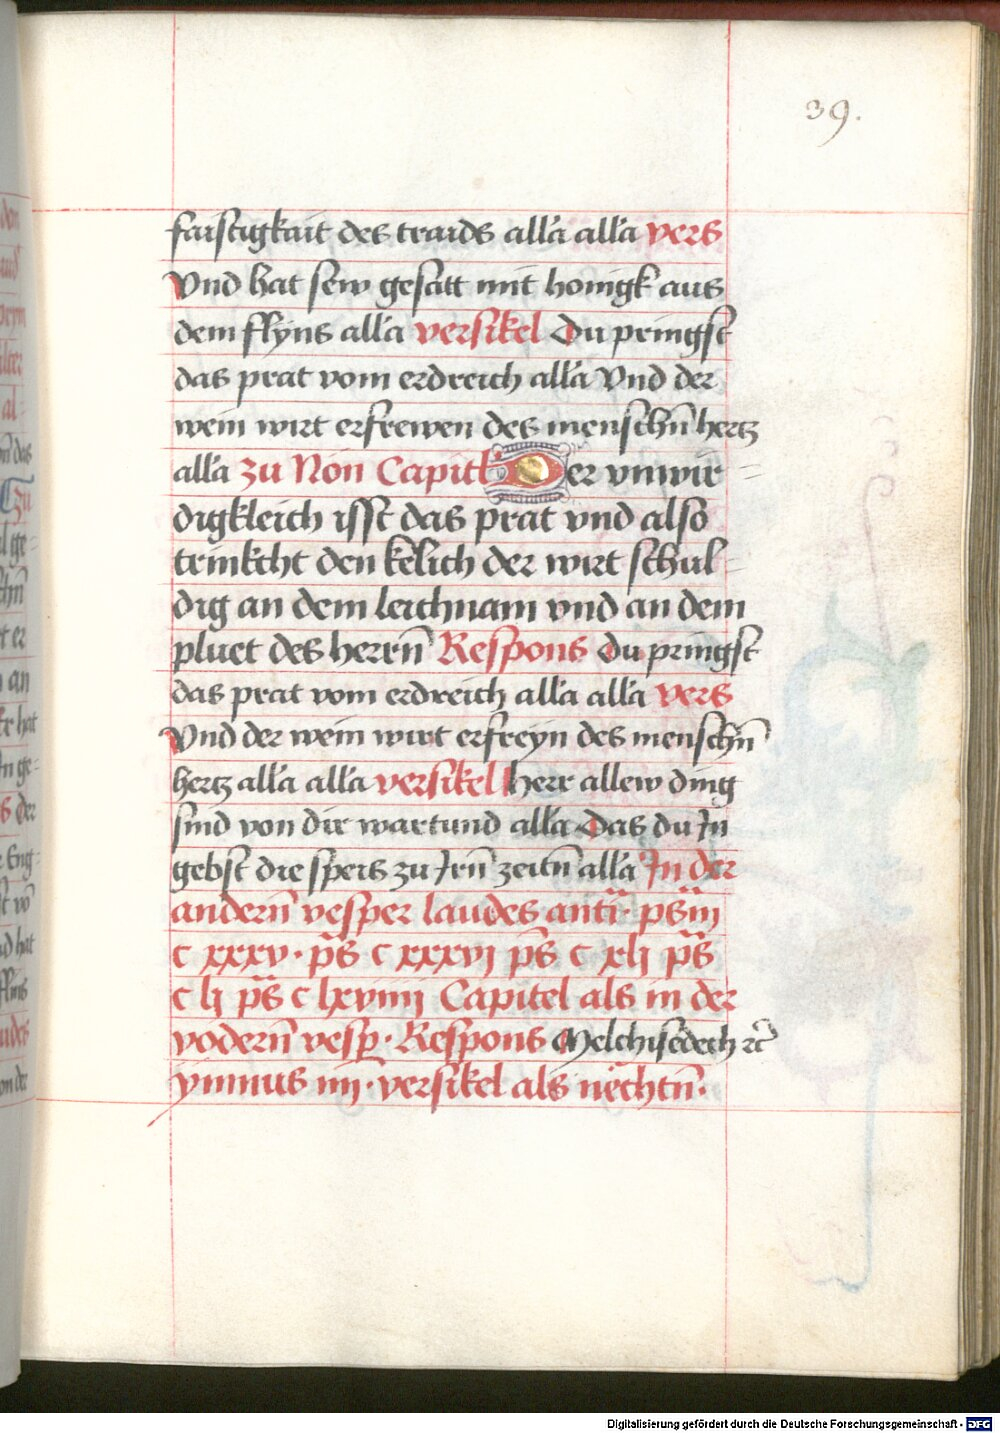 39.
faistigkait des traids all'a all'a vers
Vnd hat sew gesátt mit honigk aus
dem flyns all'a versikel Du pringst
das prat vom erdreich all'a Vnd der
wein wirt erfrewen des menschn̄ hertz
all'a zu Non Capitl' Der vnwir=
digkleich isst das prat vnd also
trinkcht den kelich der wirt schul=
dig an dem leichnam vnd an dem
pluet des herrn̄ Respons Du pringst
das prat vom erdreich all'a all'a vers
Vnd der wein wirt erfreyn des menschn̄
hertz all'a all'a versikel Herr allew ding
sind von dir wartund all'a Das du Jn
gebst die speis zu Jrn̄ zeitn̄ all'a Jn der
andern̄ vesper laudes anti· psm
c xxxv· ps̄ c xxxvj ps̄ c xlj ps̄
c lj ps̄ c lxviiij Capitel als in der
vodern̄ vesp· Respons Melchisedech ꝛc̄
ymnus iiij· versikel als nëchtn̄·
Digitalisierung gefördert durch die Deutsche Forschungsgemeinschaft - DFG